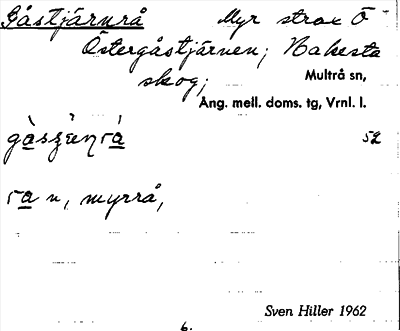 Gåstjärnrå Myr strax Ö
Östergåstjärnen; Nakesta
skog; Multrå sn,
Ång. mell. doms. tg, Vrnl. l.
52
n, myrrå,
Sven Hiller 1962
6.